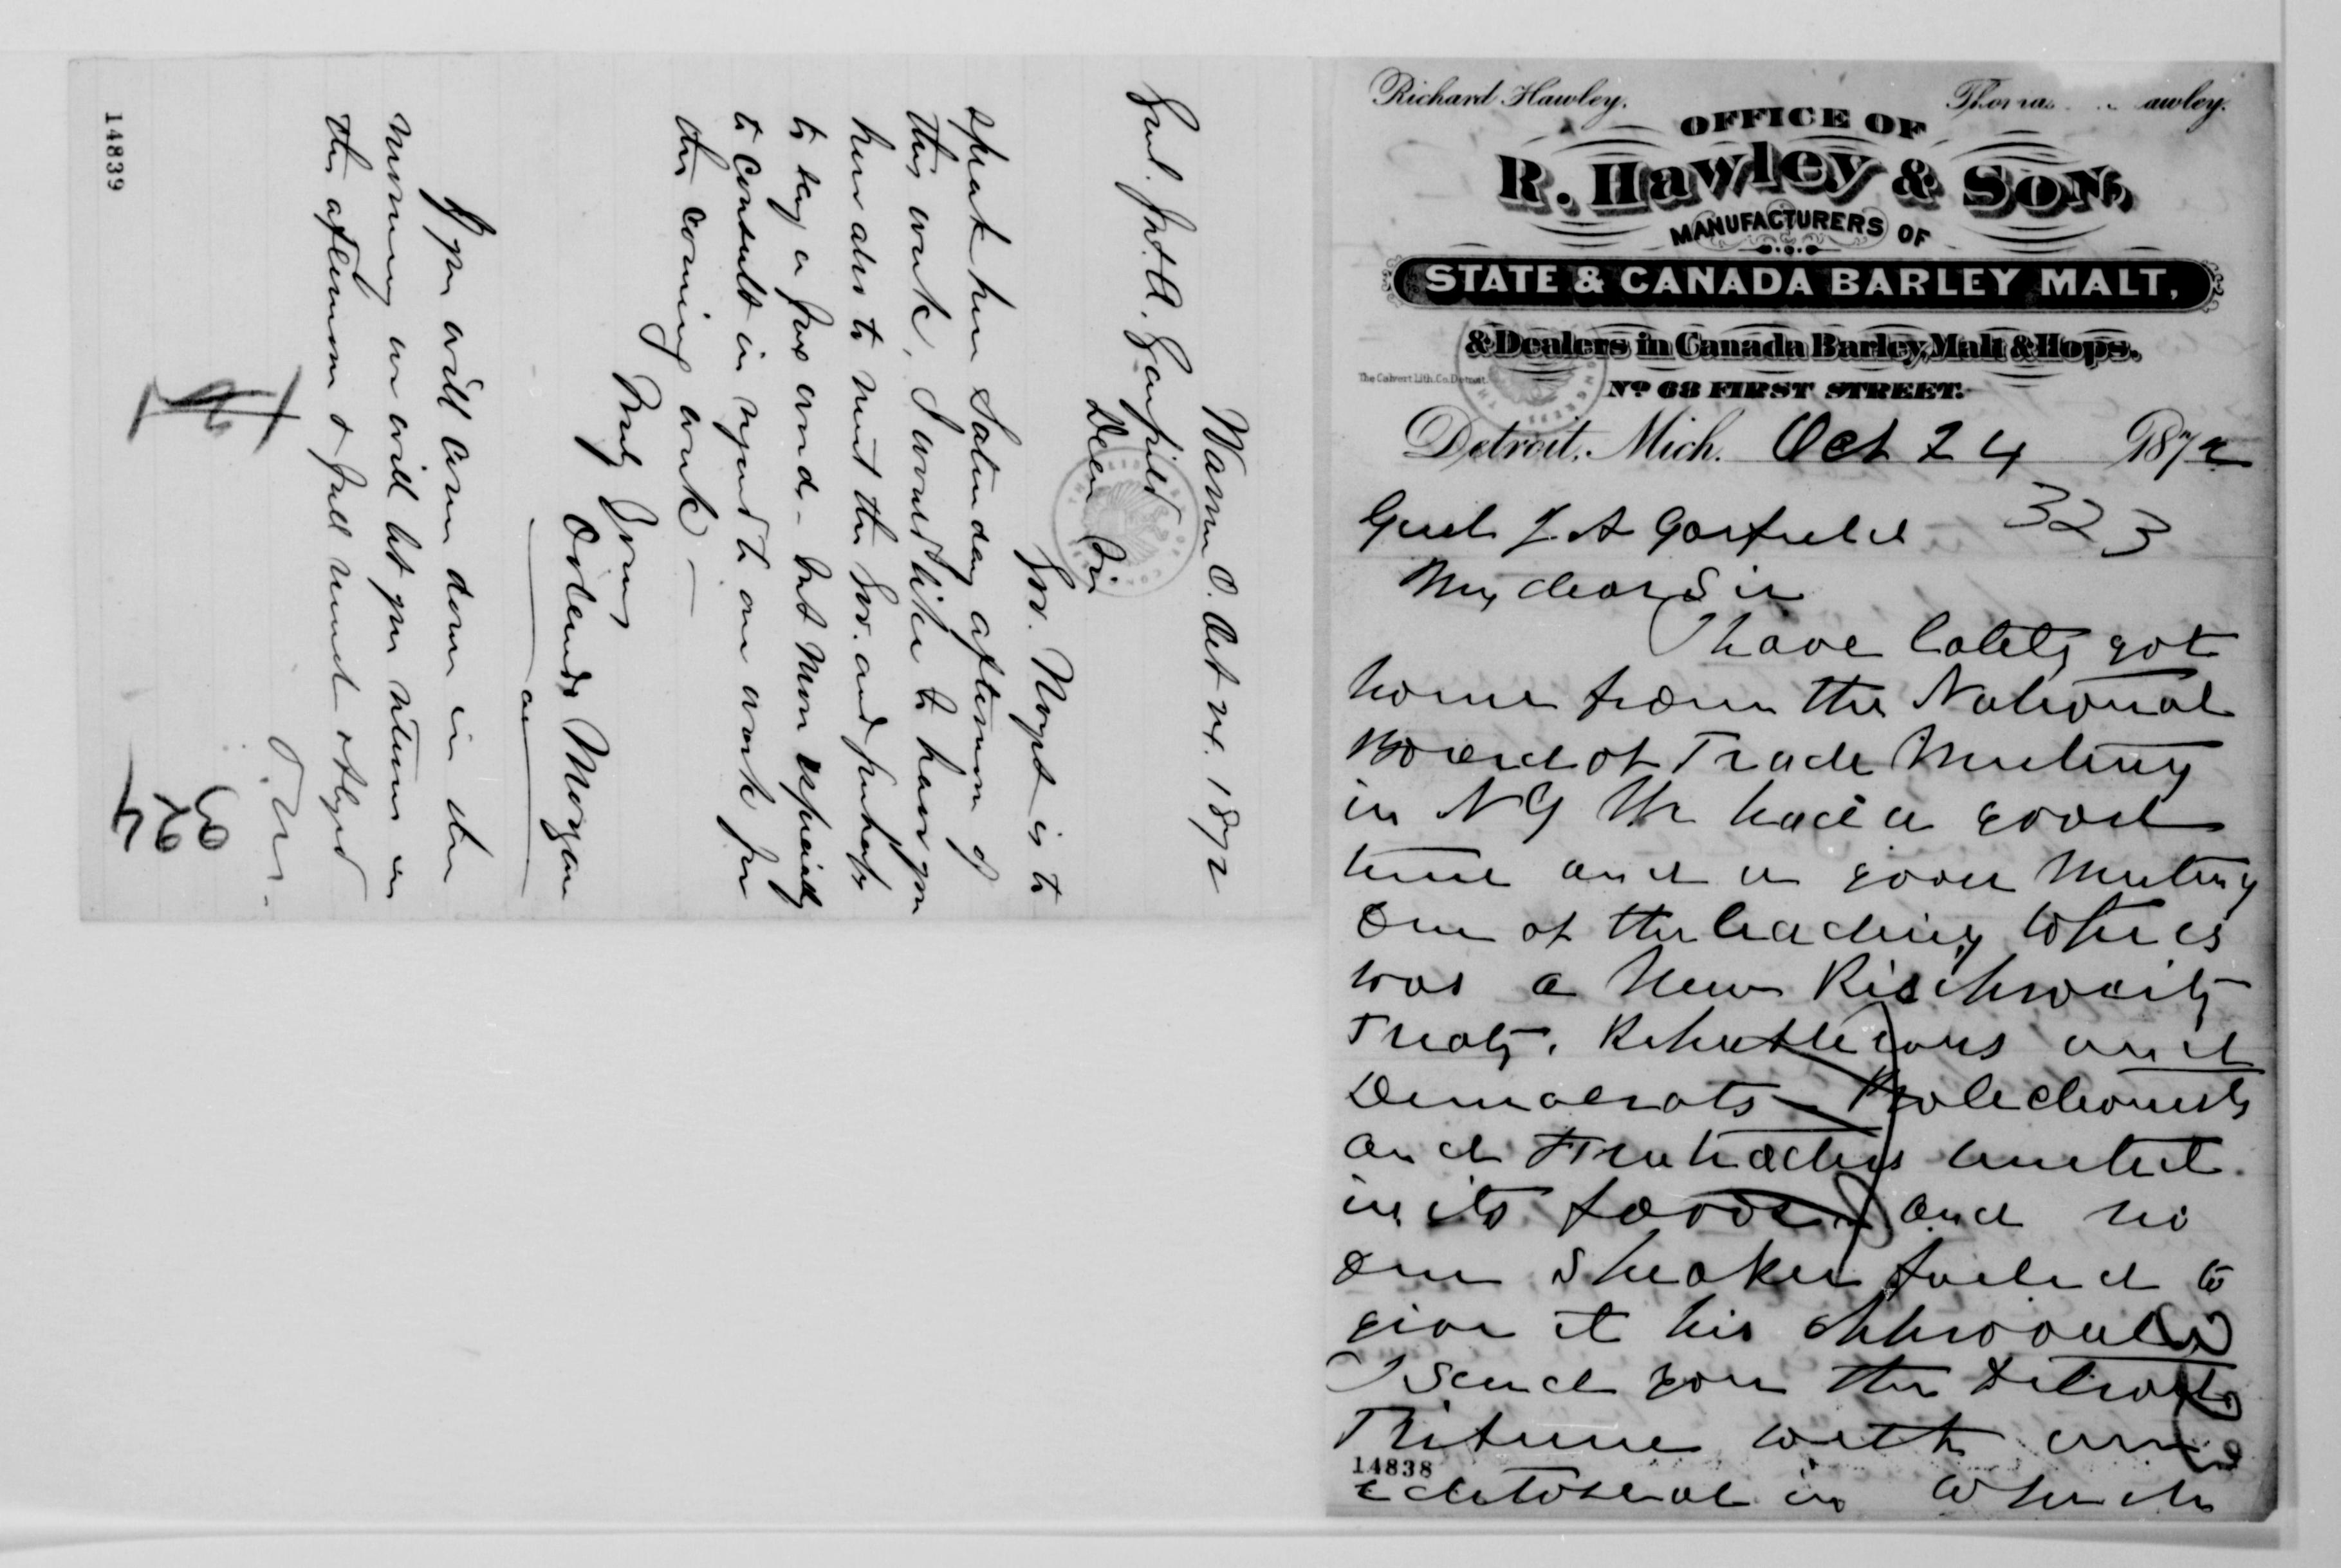 Warren O. Oct 24. 1872
Genl. Jas. A. Garfield
Dear Sir
Gov. Noyes is to
speak here Saturday afternoon of
this week, I would like to have you
here also to meet the Gov. and perhaps
to say a few words - but more especially
to consult in regard to our work for
the coming week —
Truly Yours
Orlando Morgan
over
If you will come down in the
morning we will let you return in
the afternoon & feel much obliged
O. M.
324
14839
Richard Hawley.
Thomas Hawley.
OFFICE OF
R. Hawley & Son,
MANUFACTURERS OF
STATE & CANADA BARLEY MALT,
& Dealers in Canada Barley, Malt & Hops.
The Calvert Lith. Co. Detroit.
No 68 FIRST STREET.
Detroit, Mich. Oct 24 1872
323
Genl J A Garfield
My dear Sir
I have lately got
home from the National
Board of Trade Meeting
in NY We had a good
time and a good Meeting
One of the leading topics
was a New Reciprocity
Treaty. Republicans and
Democrats - Protectionists
and Free traders united
in its favor and no
one speaker failed to
give it his approval
I send you the Detroit
Tribune with an
editorial in which
14838